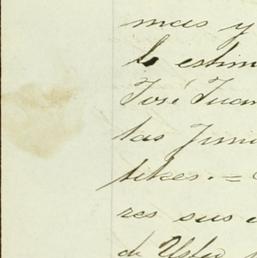 mas y
lo estim
José Juan
las Juni
tikes. =
res sus
de Usted